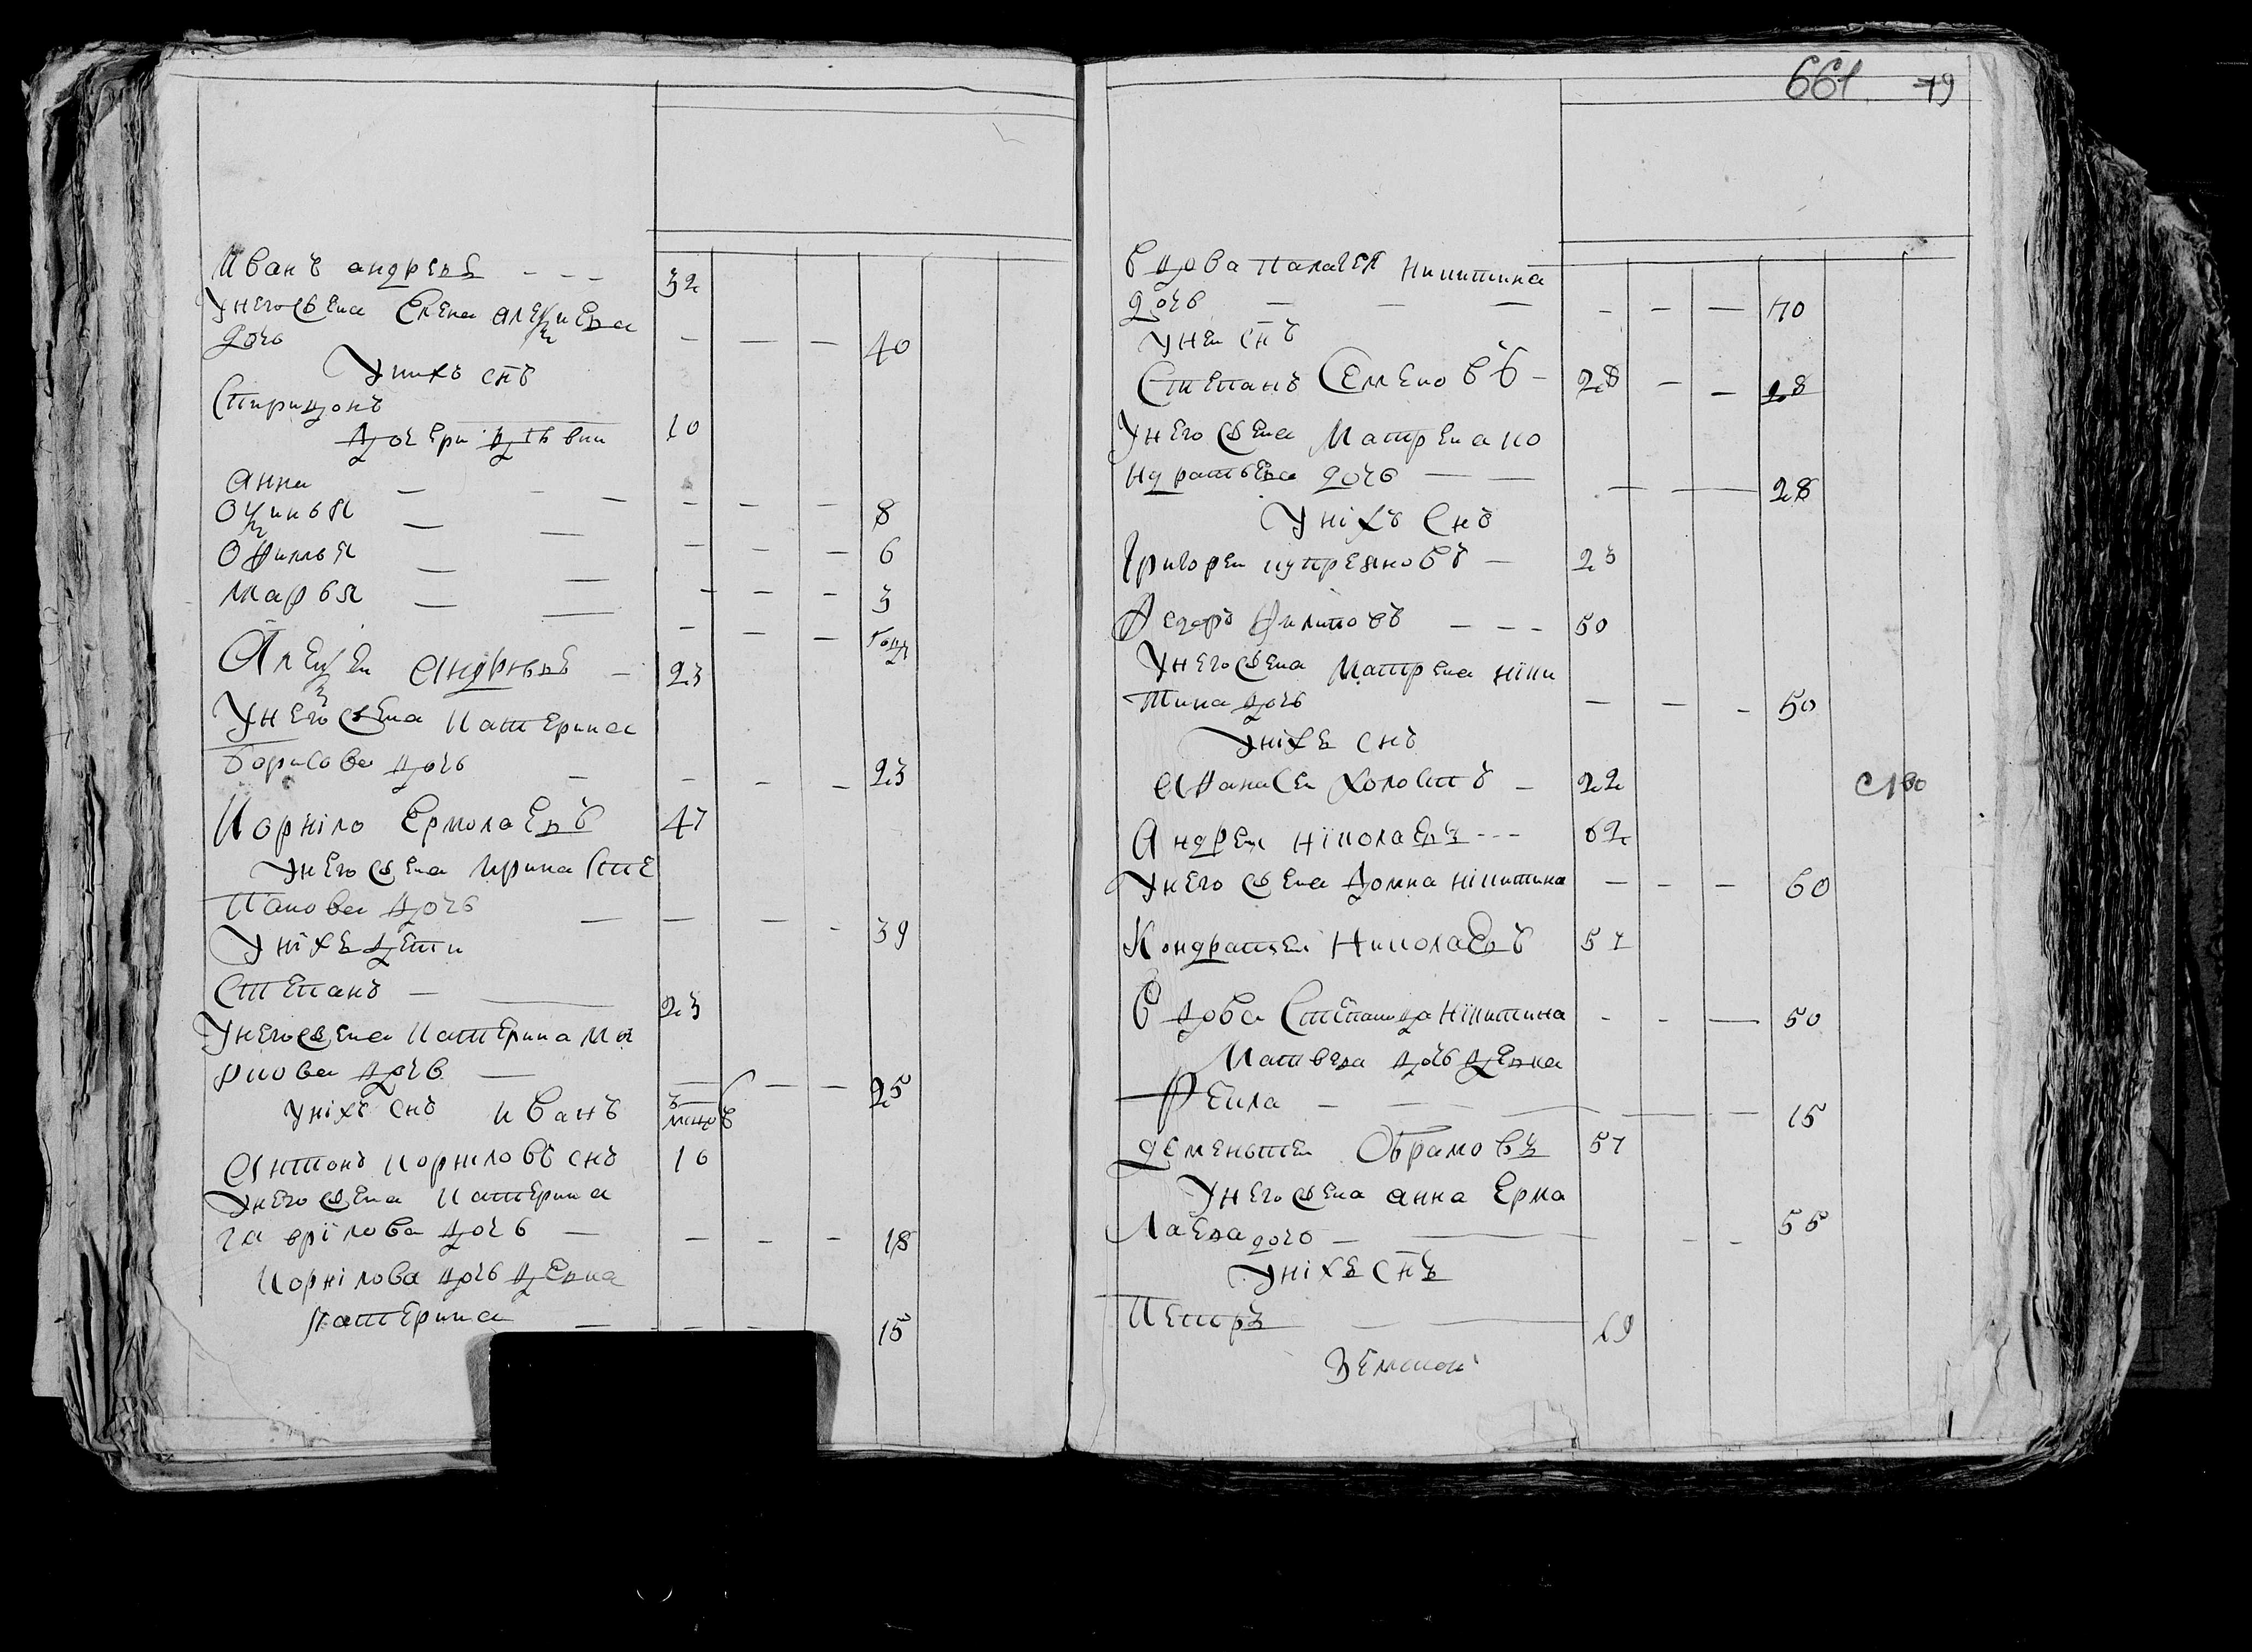 Иванъ андреевъ - - - 32
У него жена Елена алеѯиева
дочь - - - 40
У нихъ снъ
Спиридонъ 10
Дочери дѣвки
Анна - - - 8
Оѯинья - - - 6
Офимья - - - 3
Марья - - - годъ
Алеѯеи Андрѣевъ - 23
У него жена катерина
Борисова дочь - - - 23
Корніло Ермолаевъ 47
У него жена Ирина Сте
панова дочь - - - 39
У ніхъ дети
Степанъ - 23
У него жена катерина Ма
ркова дочь - - - 25
У ніхъ снъ иванъ
Антонъ корниловъ снъ 16
У него жена катерина
гаврілова дочь - - - 18
Корнілова дочь девка
катерина - - - 15
661 79
Вдова палагея никитина
дочь - - - 70
У неи снъ
Степанъ Семеновъ - 28 - - 28
У него жена Матрена ко
ндратьева дочь - - 28
У ніхъ Снъ
Григореи купреяновъ - 23
Федоръ филиповъ - - - 50
У него жена Матрена ніки
тина дочь - - - 50
У ніхъ снъ
Афанасеи холостъ - 22
Андреи ніколаевъ - - - 62
У него жена Домна нікитина - - - 60
Кондратеи Николаевъ 57
Вдова Степанида нікитина - - - 50
Матвеева дочь девка
Фекла - - - 15
дементеи Обрамовъ 57
У него жена анна Ермо
лаева дочь - - - 55
У ніхъ снъ
Петръ - 19
Земскои